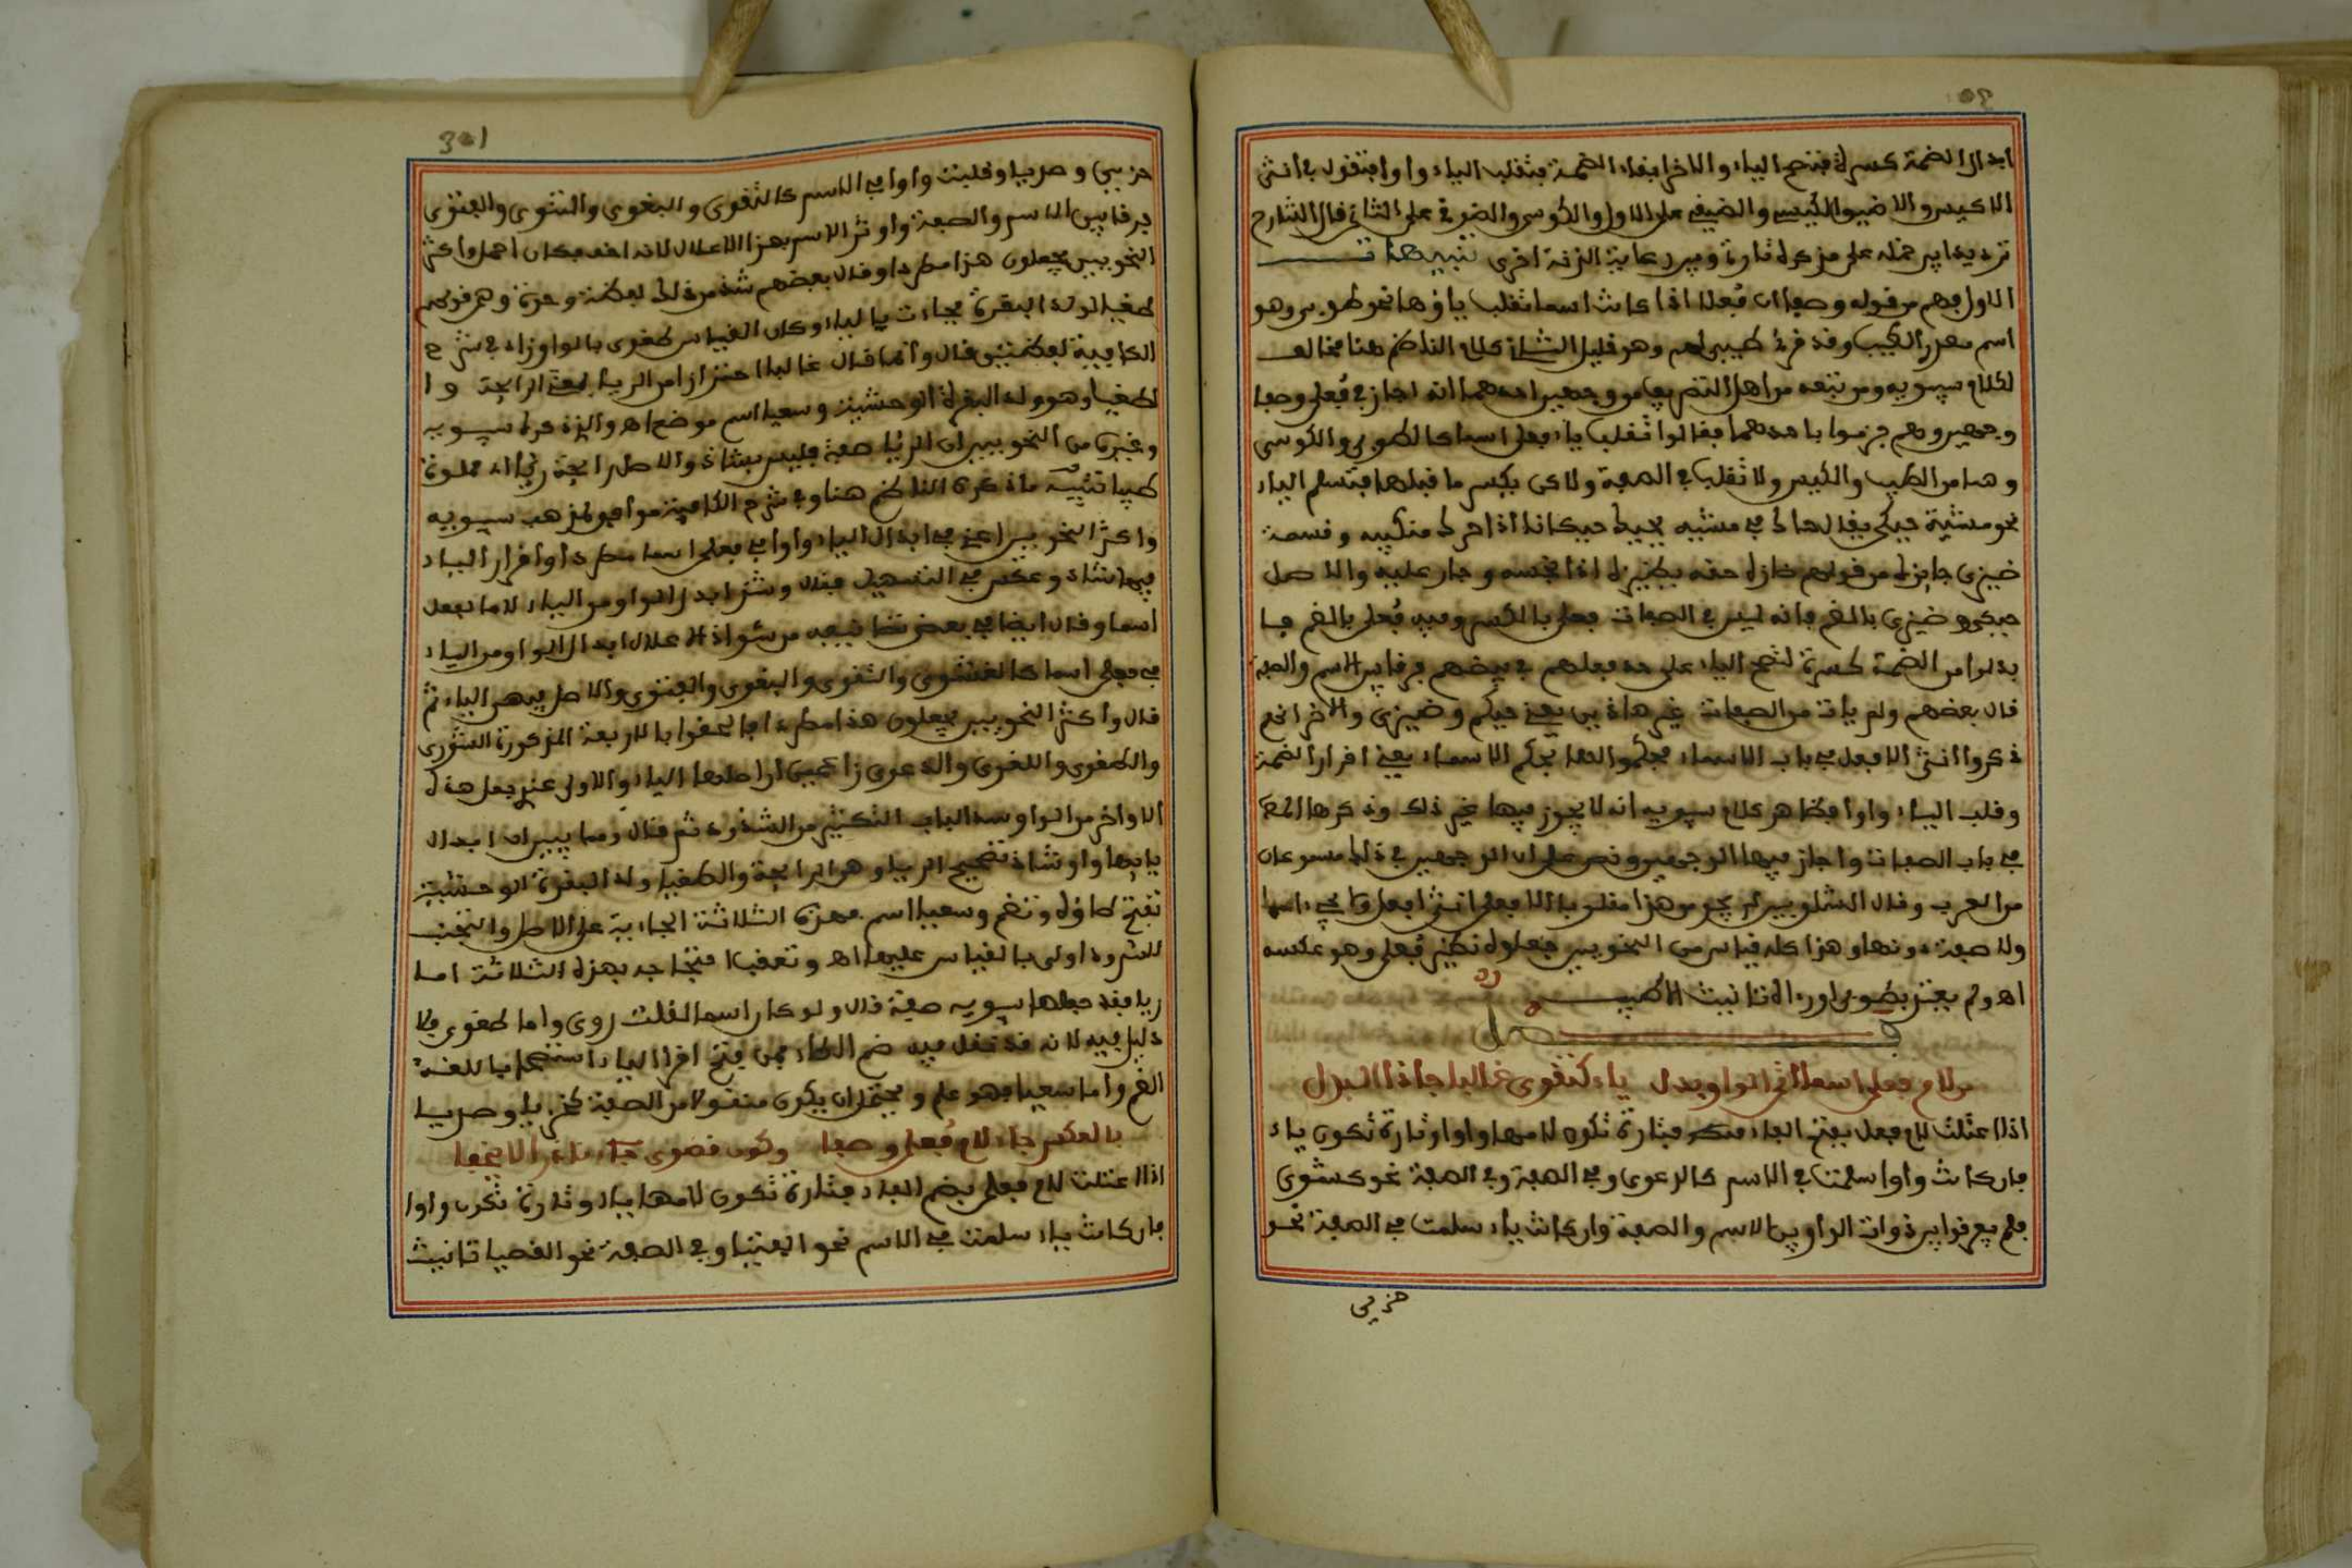 ابدال الضمة كسرة فتصح الياء والاخر ابقاء الضمة فتقلب الياء واوا فتقول في انثى
الاكيس والاضيق الكيسى والضيقى على الاول والكوسى والضوقى على الثاني قال الشارح
ترديدا بين حمله على مذكره تارة وبين رعاية الزنة اخرى تنبيهات
الاول فهم من قوله وصفا ان فعلى اذا كانت اسما تقلب ياؤها نحو طوبى وهو
اسم مصدر الطيب وقد قرئ طيبى لهم وهو قليل الثاني كلام الناظم هنا مخالف
لكلام سيبويه ومن تبعه من اهل التصريف من وجهين احدهما انه اجاز في فعلى وصفا
وجهين وهم جزموا باحدهما فقالوا تقلب ياء فعلى اسما كالطوبى والكوسى
وهما من الطيب والكيس ولا تقلب في الصفة ولاكن يكسر ما قبلها فتسلم الياء
نحو مشية حيكى يقال حاك في مشيه يحيك حيكانا اذا حرك منكبيه وقسمة
ضيزى جايزة من قولهم ضازه حقه يضيزه اذا بخسه وجار عليه والاصل
حيكى وضيزى بالضم فانه ليس في الصفات فعلى بالكسر وفيه فعلى بالضم فا
بدلوا من الضمة كسرة لتصح الياء على حد فعلهم في بيض هم فرقا بين الاسم والصفة
قال بعضهم ولم يات من الصفات غير هاذين يعني حيكى وضيزى والاخر انهم
ذكروا انثى الافعل في باب الاسماء فحكموا لها بحكم الاسماء يعني اقرار الضمة
وقلب الياء واوا فظاهر كلام سيبويه انه لا يجوز فيها غير ذلك وذكرها المص
في باب الصفات واجاز فيها الوجهين ونص على ان الوجهين في ذلك مسموعان
من العرب وقال الشلوبين لم يجئ من هذا مقلوبا الا فعلى انثى افعل وما يجيء اسما
ولا صفة دونها وهذا كله قياس من النحويين جعلوه نظير فعلى وهو عكسه
اهـ ولم يعتبر بطوبى اوردء التانيث الاطيب
فصل
من لام فعلى اسما اتى الواو بدل ياء كتقوى غالبا جا ذا البدل
اذا اعتلت لام فعلى بفتح الفاء فتارة تكون لامها واوا وتارة تكون ياء
فان كانت واوا سلمت في الاسم كالدعوى وفي الصفة نحو نشوى
فلم يفرقوا بين ذوات الواو بين الاسم والصفة وان كانت ياء سلمت في الصفة نحو
خزيى
301
خزيى وصديا وقلبت واوا في الاسم كالتقوى والبقوى والشروى والفتوى
فرقا بين الاسم والصفة واوثر الاسم بهذا الاعلال لانه اخف فكان احمل واكثر
النحويين يجعلون هذا مطردا وقال بعضهم شذ من ذلك لفظة وحدة وهو قولهم
طغيا لولد البقرة فجاءت بالياء وكان القياس طغوى بالواو وزاد في شرح
الكافية لفظتين قال وانما قال غالبا احترازا من الريا بمعنى الرايحة و ا
لطغيا وهو ولد البقرة الوحشية وسعيا اسم موضع اهـ والذي ذكره سيبويه
وغيره من النحويين ان الريا صفة فليس بشاذ والاصل رايحة ريا اي مملوة
طيبا تنبيه ما ذكره الناظم هنا وفي شرح الكافية موافق لمذهب سيبويه
واكثر النحويين اعني في ابدال الياء واوا في فعلى اسما مطردا واقرار الياء
فيها شاذ وعكس في التسهيل فقال وشذ ابدال الواو من الياء لاما لفعلى
اسما وقال ايضا في بعض تصانيفه من شواذ الاعلال ابدال الواو من الياء
في فعلى اسما كالنشوى والتقوى والبغوى والفتوى والاصل فيهن الياء ثم
قال واكثر النحويين يجعلون هذا مطردا فالحقوا بالاربعة المذكورة الشروى
والطغوى واللغوى والدعوى زاعمين ان اصلها الياء والاولى عندي جعل هذه
الاواخر من الواو سدا لباب التكثير من الشذوذ ثم قال ومما يبين ان ابدال
يايها واوا شاذ تصحيح الريا وهو الرايحة والطغيا ولد البقرة الوحشية
تفتح طاؤه وتضم وسعيا اسم فهذه الثلاثة الجارية على الاصل والتجنب
للشذوذ اولى بالقياس عليها اهـ وتعقب احتجاجه بهذه الثلاثة اما
ريا فقد جعلها سيبويه صفة قال ولو كان اسما لقلت روى واما طغوى فلا
دليل فيه لانه قد نقل فيه ضم الطاء فمن فتح اقر الياء استصحابا للغة
الضم واما سعيا فهو علم ويحتمل ان يكون منقولا من الصفة كخزيا وصديا
بالعكس جاء لام فعلى وصفا وكون قصوى نادرا لا يخفى
اذا اعتلت لام فعلى بضم الفاء فتارة تكون لامها ياء وتارة تكون واوا
فان كانت ياء سلمت في الاسم نحو الفتيا وفي الصفة نحو القصيا تانيث